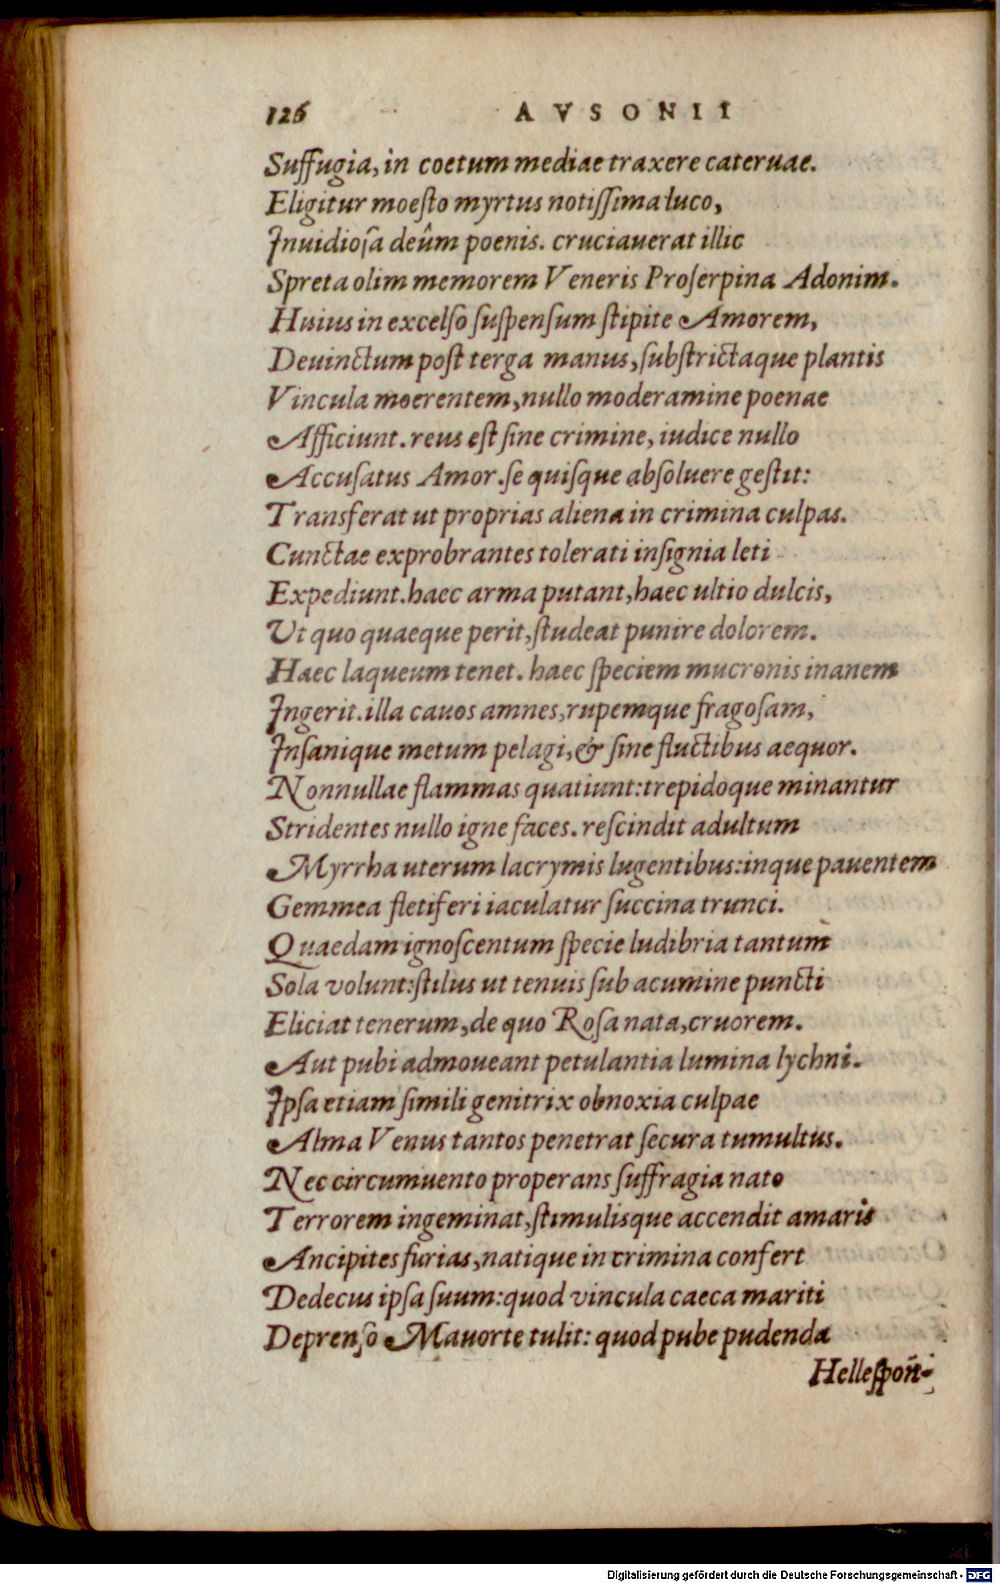 126 AVSONII
Suffugia, in coetum mediae traxere cateruae.
Eligitur moesto myrtus notissima luco,
Inuidiosa deûm poenis. cruciauerat illic
Spreta olim memorem Veneris Proserpina Adonim.
Huius in excelso suspensum stipite Amorem,
Deuinctum post terga manus, substrictaque plantis
Vincula moerentem, nullo moderamine poenae
Afficiunt. reus est sine crimine, iudice nullo
Accusatus Amor. se quisque absoluere gestit:
Transferat ut proprias aliena in crimina culpas.
Cunctae exprobrantes tolerati insignia leti
Expediunt. haec arma putant, haec ultio dulcis,
Ut quo quaeque perit, studeat punire dolorem.
Haec laqueum tenet. haec speciem mucronis inanem
Ingerit. illa cauos amnes, rupemque fragosam,
Insanique metum pelagi, & sine fluctibus aequor.
Nonnullae flammas quatiunt: trepidoque minantur
Stridentes nullo igne faces. rescindit adultum
Myrrha uterum lacrymis lugentibus: inque pauentem
Gemmea fletiferi iaculatur succina trunci.
Quaedam ignoscentum specie ludibria tantum
Sola volunt: stilus ut tenuis sub acumine puncti
Eliciat tenerum, de quo Rosa nata, cruorem.
Aut pubi admoueant petulantia lumina lychni.
Ipsa etiam simili genitrix obnoxia culpae
Alma Venus tantos penetrat secura tumultus.
Nec circumuento properans suffragia nato
Terrorem ingeminat, stimulisque accendit amaris
Ancipites furias, natique in crimina confert
Dedecus ipsa suum: quod vincula caeca mariti
Deprenso Mauorte tulit: quod pube pudenda
Hellespon-
Digitalisierung gefördert durch die Deutsche Forschungsgemeinschaft - DFG